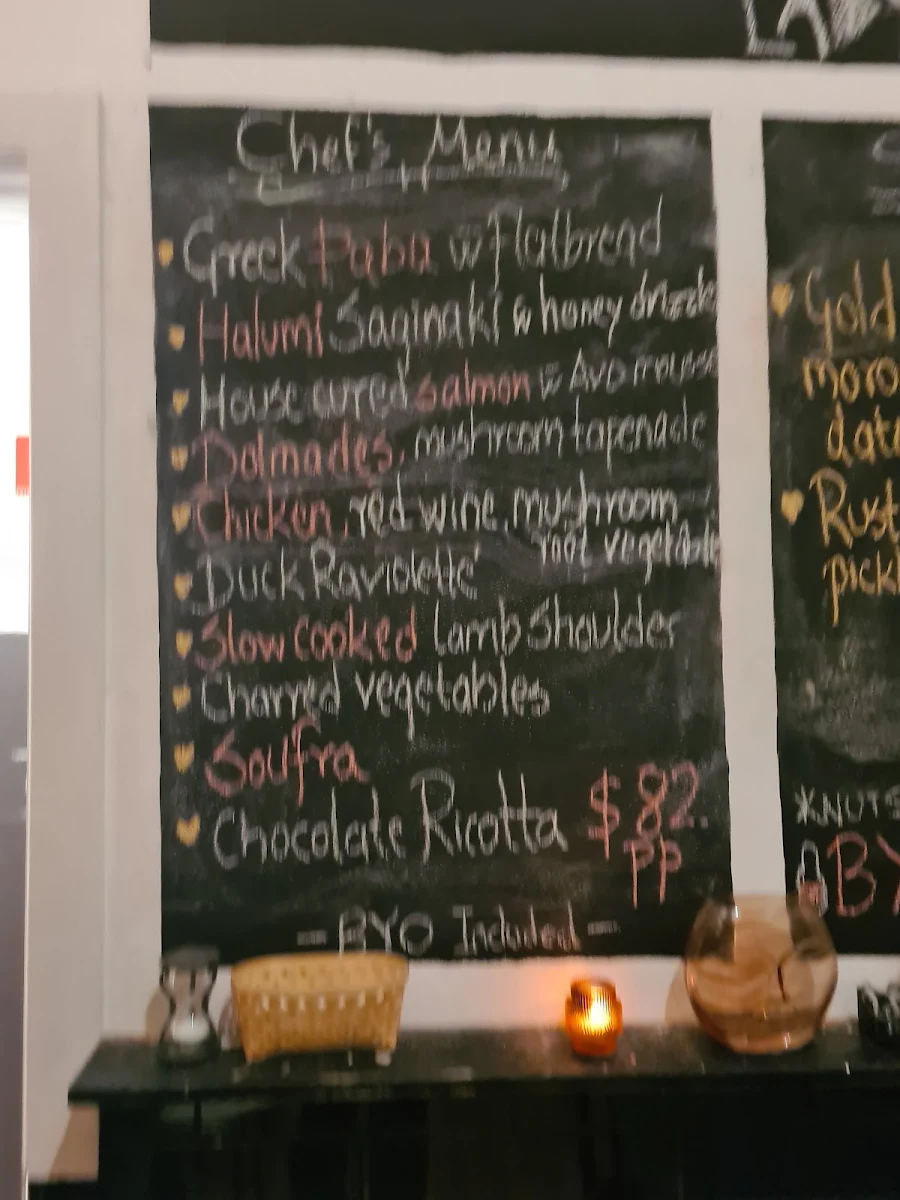 Chef's Menu
Greek Faba w Flatbread
Halumi Saginaki w honey drizzle
House cured salmon w Avo mousse
Dolmades, mushroom tapenade
Chicken, red wine, mushroom
root vegetable
Duck Raviolette
Slow cooked lamb shoulder
Charred vegetables
Soufra
Chocolate Ricotta $82.
PP
- BYO Included -
Gold
moro
date
Rust
pick
*NUTS
BY